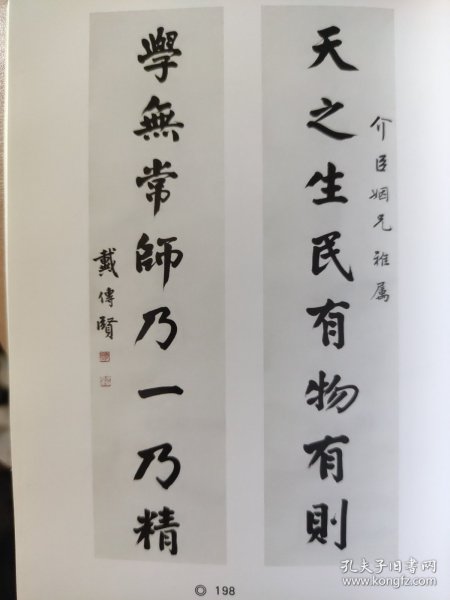 天之生民有物有則
介臣姻兄雅属
學無常師乃一乃精
戴傳賢
◎ 198
孔夫子旧书网
www.kongfz.com